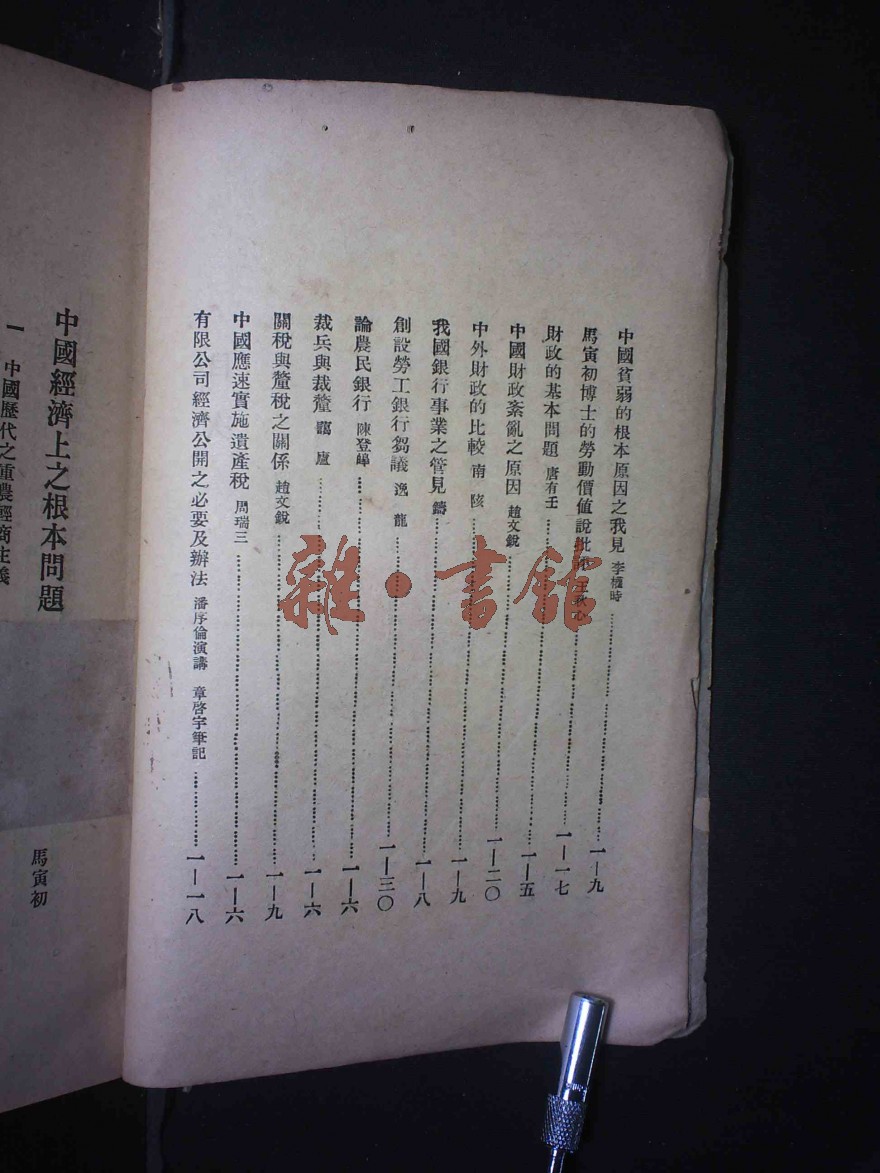 中國貧弱的根本原因之我見 李權時……一—九
馬寅初博士的勞動價值說批評 王秋心……一—一七
財政的基本問題 唐有壬……一—五
中國財政紊亂之原因 趙文銳……一—二〇
中外財政的比較 南陔……一—九
我國銀行事業之管見 鑄……一—八
創設勞工銀行芻議 逸龍……一—三〇
論農民銀行 陳登皞……一—六
裁兵與裁釐 靄廬……一—六
關稅與釐稅之關係 趙文銳……一—九
中國應速實施遺產稅 周瑞三……一—六
有限公司經濟公開之必要及辦法 潘序倫演講 章啓宇筆記……一—一八
中國經濟上之根本問題
馬寅初
一 中國歷代之重農輕商主義
雜·書館